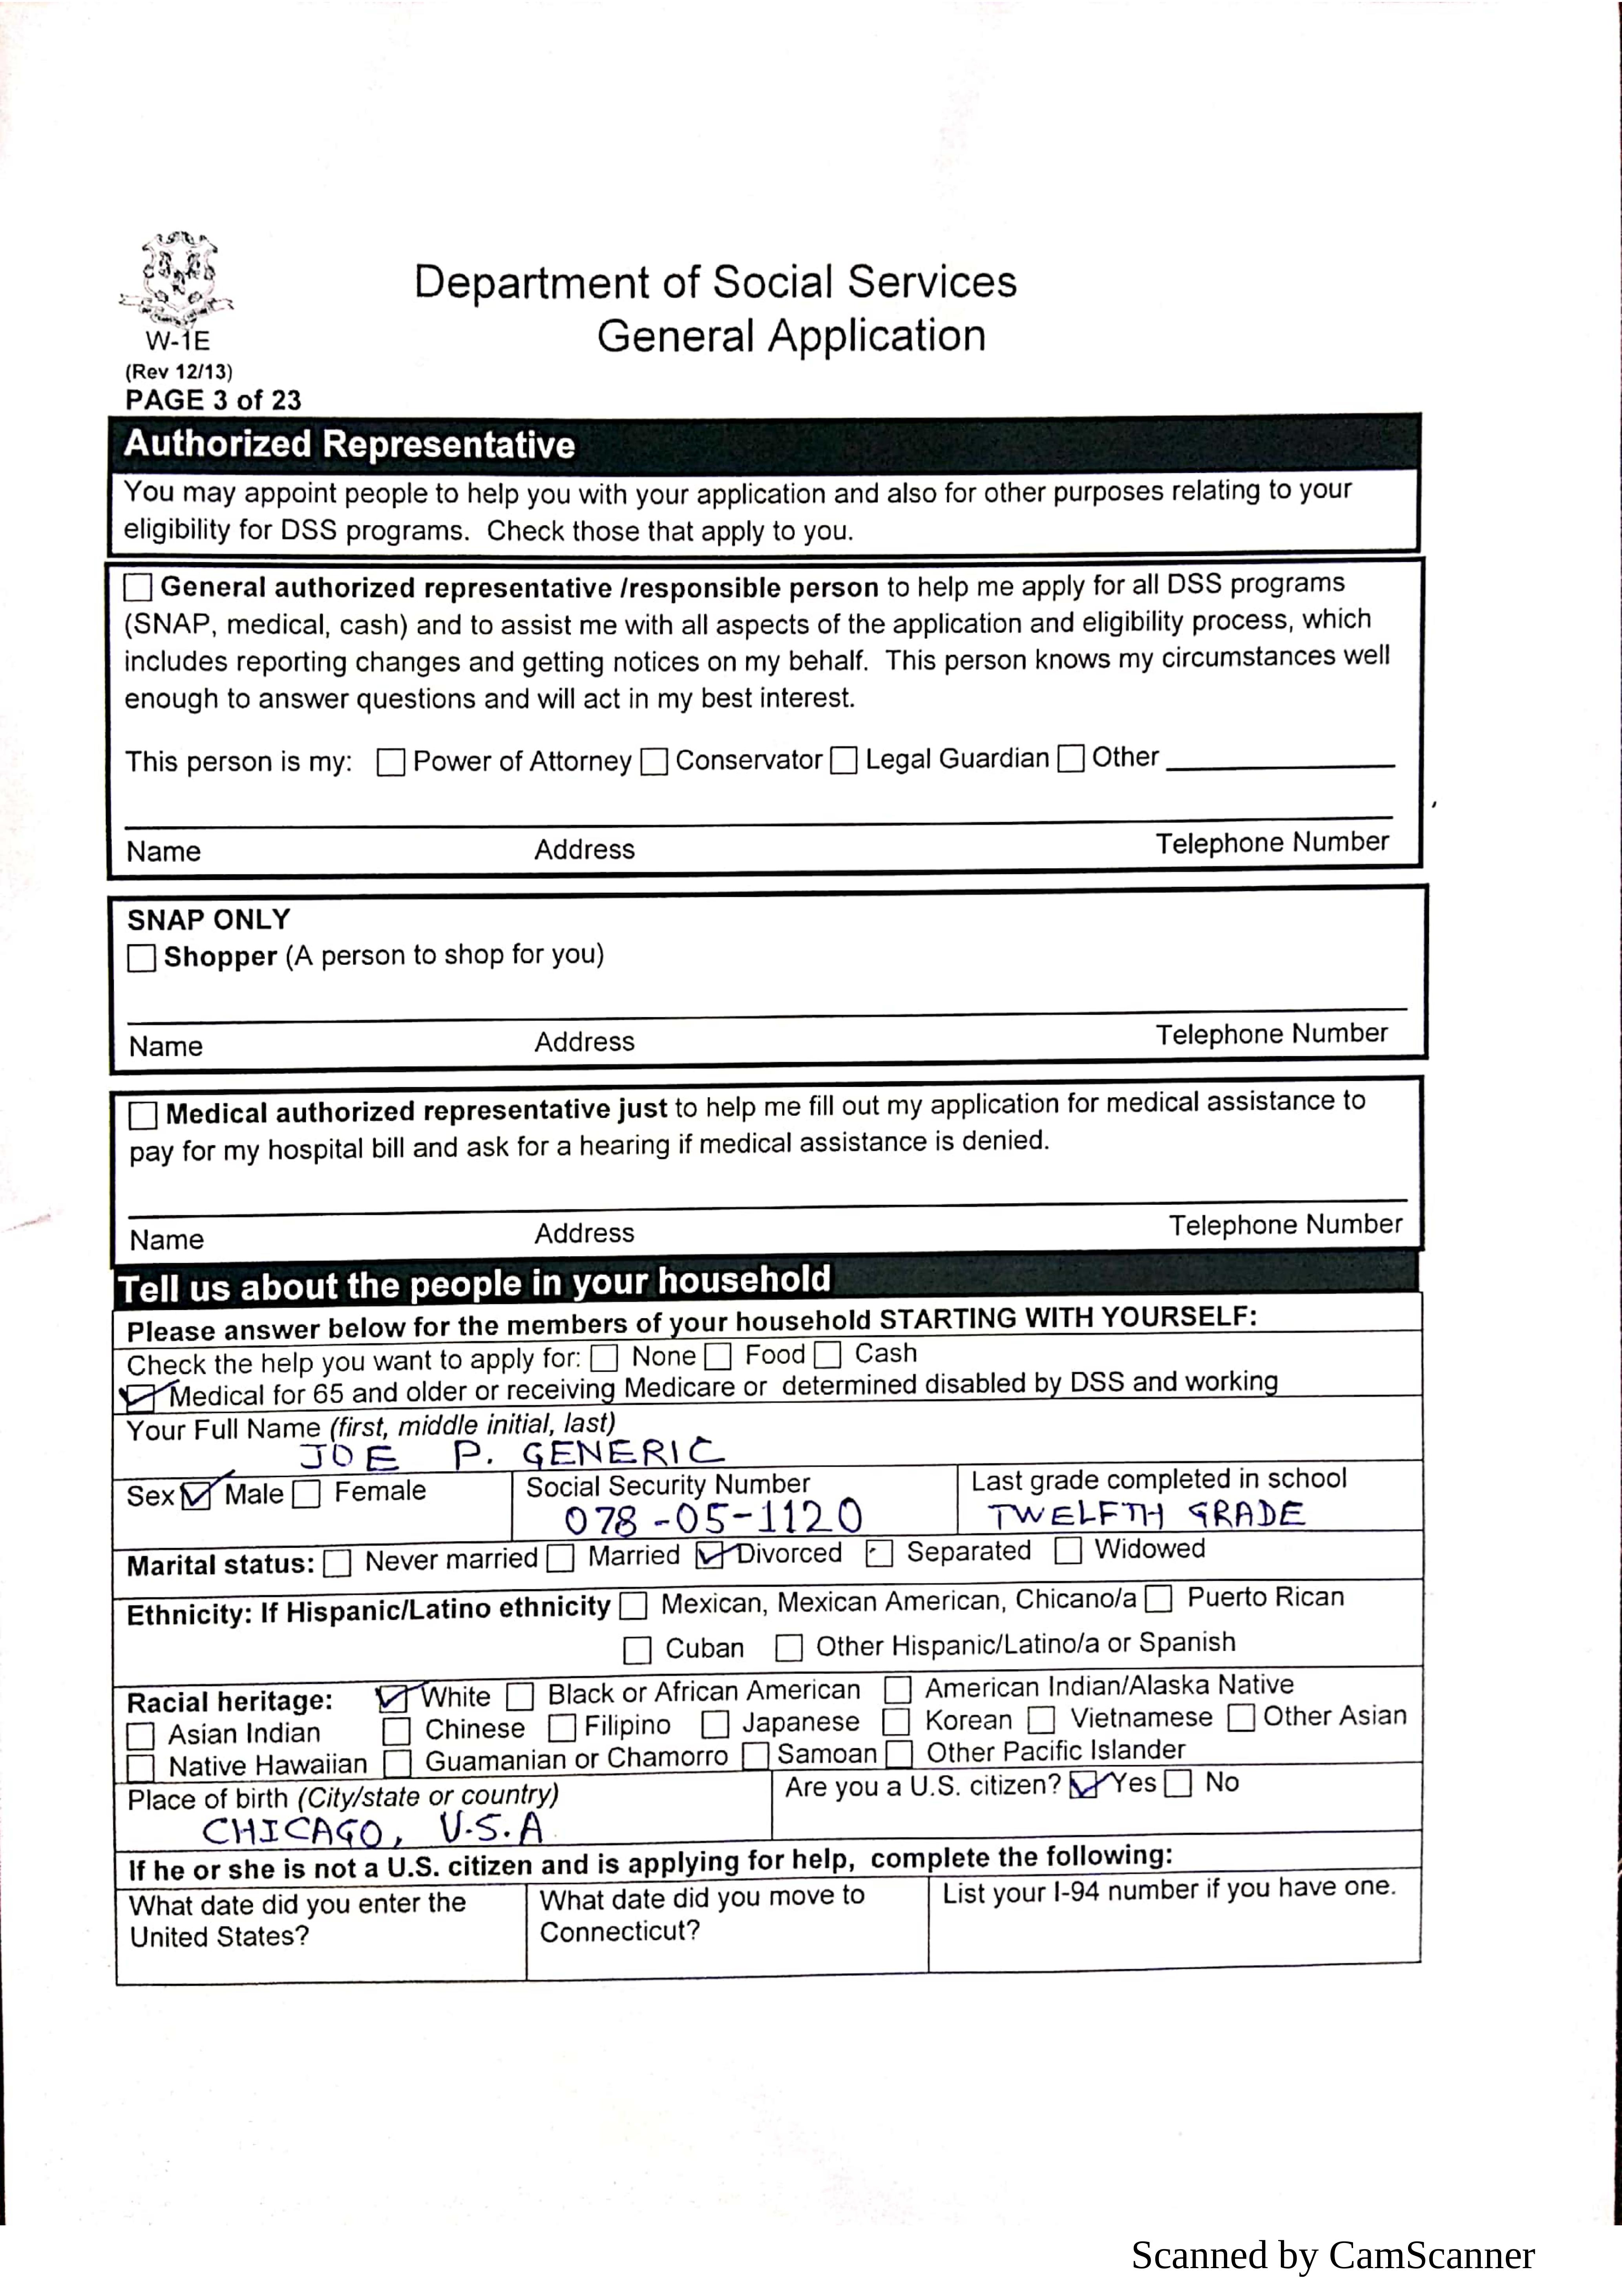 Department of Social Services
General Application
W-1E
(Rev 12/13)
PAGE 3 of 23
Authorized Representative
You may appoint people to help you with your application and also for other purposes relating to your
eligibility for DSS programs. Check those that apply to you.
General authorized representative /responsible person to help me apply for all DSS programs
(SNAP, medical, cash) and to assist me with all aspects of the application and eligibility process, which
includes reporting changes and getting notices on my behalf. This person knows my circumstances well
enough to answer questions and will act in my best interest.
This person is my: Power of Attorney Conservator Legal Guardian Other
Name Address Telephone Number
SNAP ONLY
Shopper (A person to shop for you)
Name Address Telephone Number
Medical authorized representative just to help me fill out my application for medical assistance to
pay for my hospital bill and ask for a hearing if medical assistance is denied.
Name Address Telephone Number
Tell us about the people in your household
Please answer below for the members of your household STARTING WITH YOURSELF:
Check the help you want to apply for: None Food Cash
Medical for 65 and older or receiving Medicare or determined disabled by DSS and working
Your Full Name (first, middle initial, last)
JOE P. GENERIC
Sex Male Female Social Security Number Last grade completed in school
078-05-1120 TWELFTH GRADE
Marital status: Never married Married Divorced Separated Widowed
Ethnicity: If Hispanic/Latino ethnicity Mexican, Mexican American, Chicano/a Puerto Rican
Cuban Other Hispanic/Latino/a or Spanish
Racial heritage: White Black or African American American Indian/Alaska Native
Asian Indian Chinese Filipino Japanese Korean Vietnamese Other Asian
Native Hawaiian Guamanian or Chamorro Samoan Other Pacific Islander
Place of birth (City/state or country) Are you a U.S. citizen? Yes No
CHICAGO, U.S.A
If he or she is not a U.S. citizen and is applying for help, complete the following:
What date did you enter the What date did you move to List your I-94 number if you have one.
United States? Connecticut?
Scanned by CamScanner